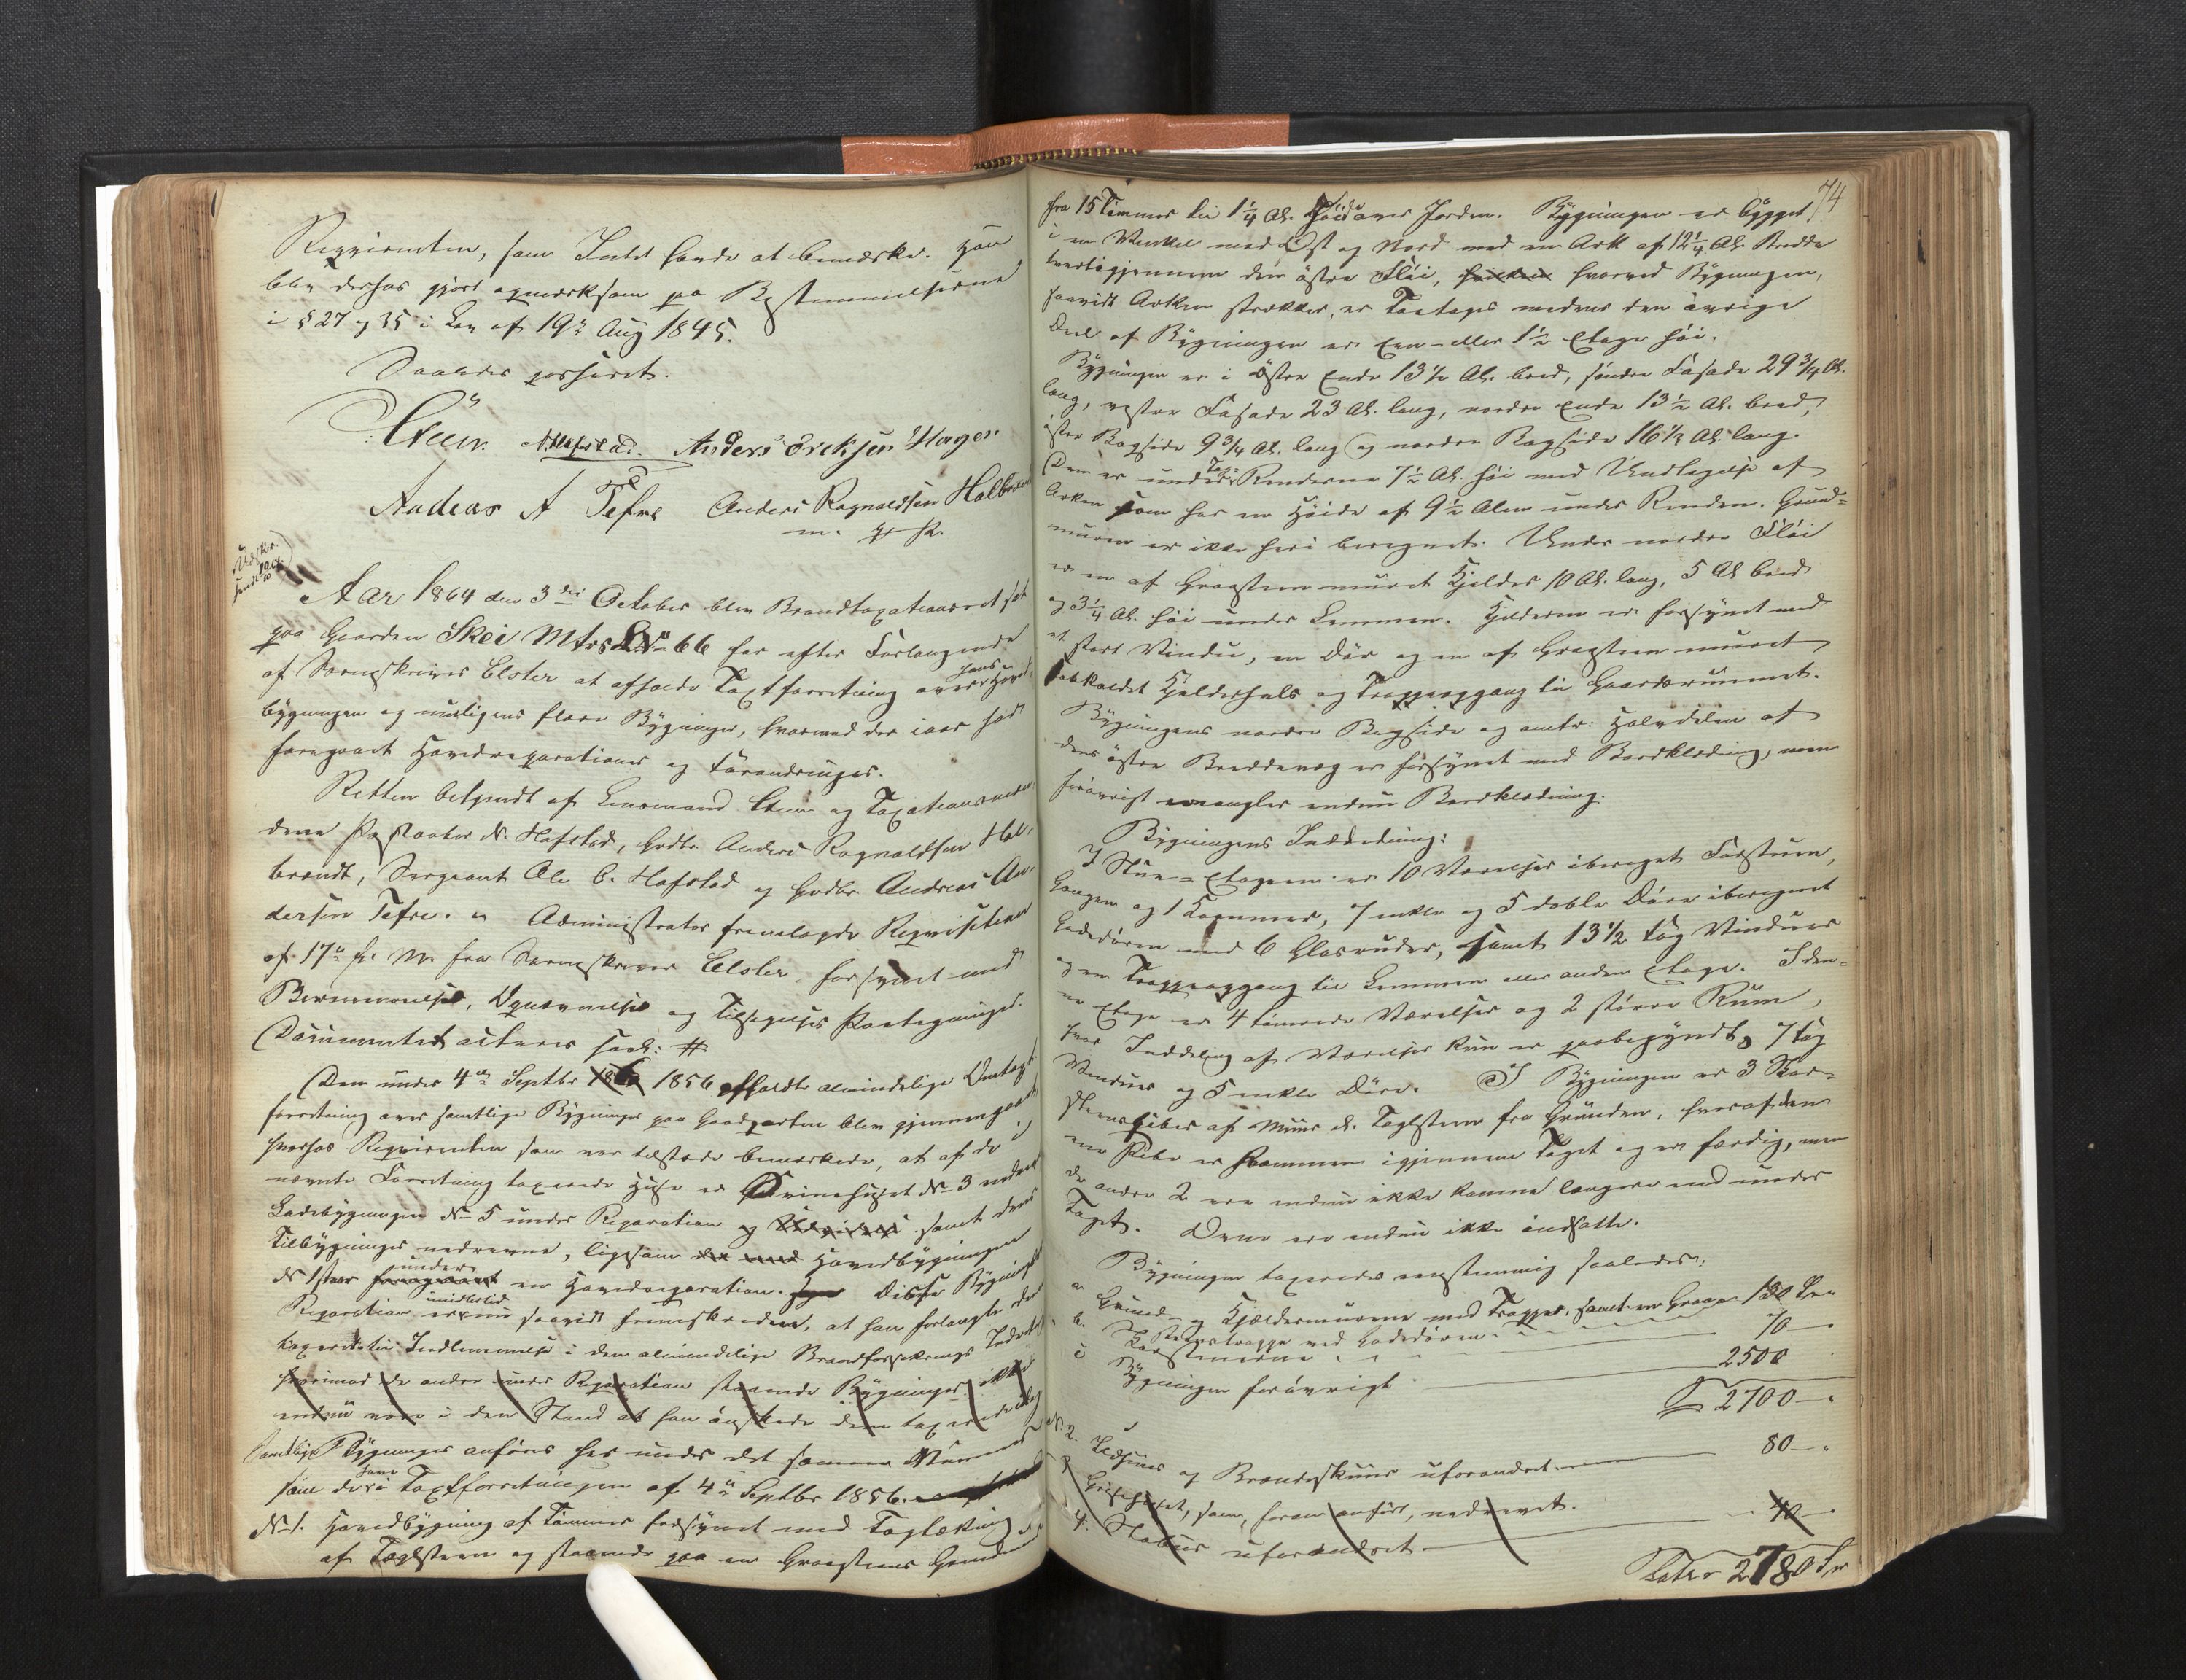 Reqvirenten, som Intet havde at bemærke. Han
blev derhos gjort opmærksom paa Bestemmelserne
i § 27 og 35 i Lov af 19de Aug 1845.
Saaledes passeret.
Steen. N Hafstad. Anders Ericksen Hagen
Andeas A Tefre Anders Ragnvaldsen Halbrændt
m. p. P.
Udskr.
sendt 10/10 64
Aar 1864 den 3die October blev Brandtaxationsret sat
paa Gaarden Skei Mtr L No 66 for efter Forlangende
af Sorenskriver Elster at afholde Taxtforretning over hans Hoved
bygningen og muligens flere Bygninger, hvormed der iaar har
foregaaet Hovedreparationer og Forandringer.
Retten betjendt af Lensmand Steen og Taxationsmæn
dene Postaaber N. Hafstad, Grdbr Anders Ragnvaldsen Hal-
brændt, Sergeant Ole C. Hafstad og Grdbr Andreas An-
dersen Tefre. Administrator fremlagde Reqvisitionen
af 17de f. M. fra Sorenskriver Elster forsynet med
Berammelses, Opnævnelses og Tilsigelses Paategninger.
Documentet acteres saal: #
Den under 4de Septbr 1856 afholdte almindelige Omtaxt
forretning over samtlige Bygninger paa Gaardparten blev gjennemgaaet
hvorhos Reqvirenten som var tilstede bemærkede, at af de i
nævnte Forretning taxerede Huse er Svinehuset No 3 nedrevet
Ladebygningen No 5 under Reparation og samt dens
Tilbygninger nedrevne, ligesom den med Hovedbygningen
No 1 staar foregaaet under en Hovedreparation. Disse Bygningers
Reparation er imidlertid nu saavidt fremskreden, at han forlangte den
taxeret til Indlemmelse i den almindelige Brandforsikrings Indretning
hvorimod de andre under Reparation staaende Bygninger ikke
endnu vare i den Stand at han ønskede dem taxerede
Samtlige Bygninger anføres her under det samme Nummer
som de have i Taxtforretningen af 4de Septbr 1856.
No 1. Hovedbygning af Tømmer forsynet med Tagtækning
af Taglsteen og staaende paa en Graasteens Grundmuur
74
fra 15 Tommer til 1 1/4 Al. Høide over Jorden. Bygningen er bygget
i en Vinkel mod Øst og Nord med en Ark af 12 1/4 Al. Bredde
tvertigjennem den østre Fløi, hvorved Bygningen,
saavidt Arken strækker, er Toetages medens den øvrige
Deel af Bygningen er een- eller 1 1/2 Etage høi.
Bygningen er i Østre Ende 13 1/2 Al. bred, søndre Fasade 29 3/4 Al.
lang, vestre Fasade 23 Al. lang, nordre Ende 13 1/2 Al. bred,
østre Bagside 9 3/4 Al. lang og nordre Bagside 16 1/3 Al. lang.
Den er under Tag-Renderne 7 1/2 Al. høi med Undtagelse af
Arken som har en Høide af 9 1/2 Alen under Renden. Grund-
muren er ikke heri beregnet. Under nordre Fløi
er en af Graasteen muret Kjelder 10 Al. lang, 5 Al bred
og 3 1/4 Al. høi under Lemmen. Kjelderen er forsynet med
et stort Vindu, en Dør og en af Graasteen muret
saakaldet Kjelderhals og Trappeopgang til Gaardsrummet.
Bygningens nordre Bagside og omtr: Halvdelen af
dens østre Breddevæg er forsynet med Bordklædning, men
forøvrigt mangler endnu Bordklædning.
Bygningens Indredning:
I Stue-Etagen er 10 Værelser iberegnet Forstuen,
Gangen og 1 Kammer, 7 enkle og 5 doble Døre iberegnet
Gadedøren med 6 Glasruder, samt 13 1/2 Fag Vinduer
og en Trappeopgang til Lemmen eller anden Etage. I den-
ne Etage er 4 tømrede Værelser og 2 større Rum,
hvor Inddeling af Værelser kun er paabegyndt, 7 Fag
Vinduer og 5 enkle Døre. I Bygningen er 3 Skor-
steenspiber af Muur el. Taglsteen fra Grunden, hvoraf den
ene Pibe er kommen igjennem Taget og er færdig, men
de andre 2 ere endnu ikke komne længere end under
Taget. Ovne ere endnu ikke indsatte.
Bygningen taxeredes eenstemmig saaledes:
a Grund- og Kjældermurene med Trapper, samt en Graa- 130 Spd
steenstrappe ved Gadedøren
b. Skorstenene 70 —
c Bygningen forøvrigt 2500
S 2700 — "
No 2. Ildhuus og Brændeskuur uforandret 80 — "
3 Grisehuset, som, foran anført, nedrevet.
4. Stabur uforandret 40 —
Latus 2780 Spd